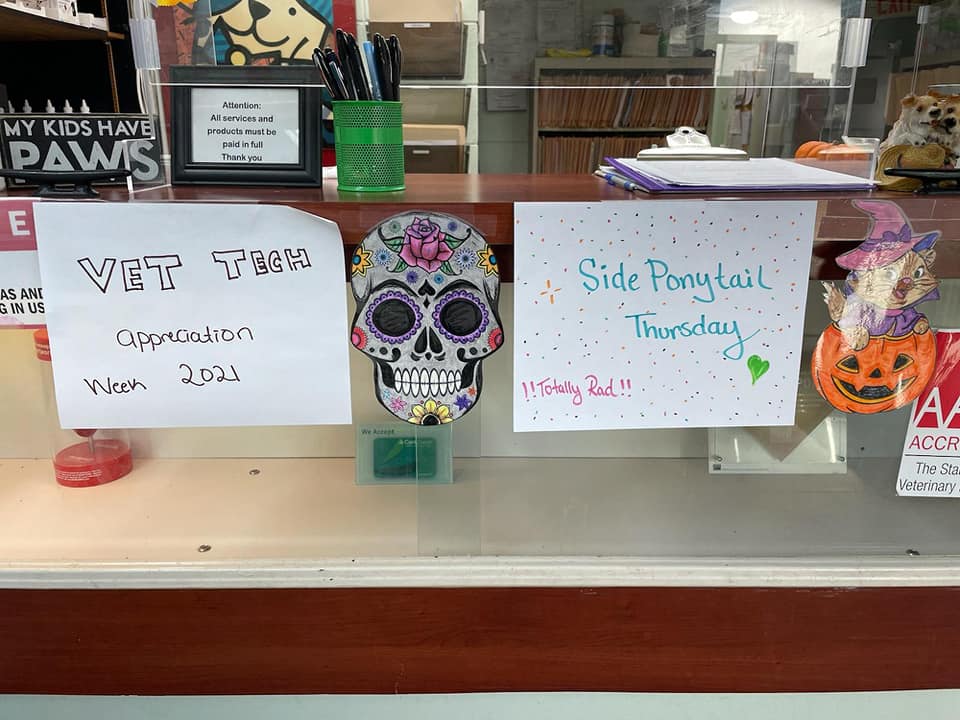 EXIT
MY KIDS HAVE
PAWS
Attention:
All services and
products must be
paid in full
Thank you
E
AS AND
G IN US
VET TECH
Appreciation
Week 2021
Side Ponytail
Thursday
!!Totally Rad!!
We Accept
AA
ACCR
The Sta
Veterinary